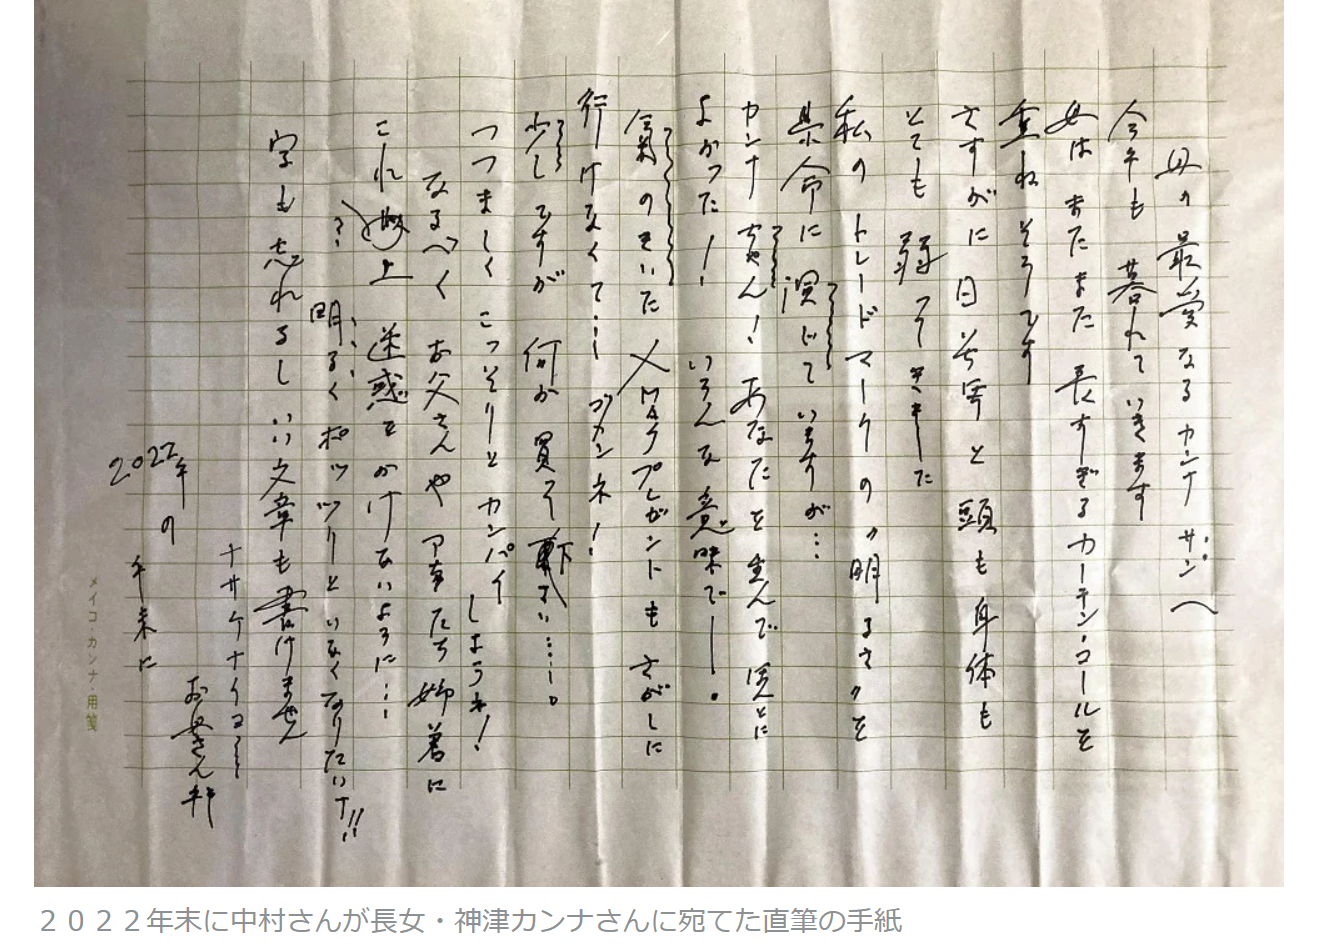 母の最愛なるカンナサンへ
今年も暮れていきます
母はまたまた長すぎるカーテン・コールを
重ねそうです
さすがに日々年と頭も身体も
とても弱ってきました
私のトレードマークの〃明るさ〃を
懸命に演じていますが…
カンナちゃん!あなたを生んでほんとに
よかった!!いろんな意味でー。
気のきいたXMASプレゼントもさがしに
行けなくて…ゴメンネ!
少しですが何か買って下さい……。
つつましくこっそりとカンパイしようネ!
なるべくお父さんや たち姉弟に
これ以上迷惑をかけないように…
?明るくポックリといなくなりたいナ!!
字も忘れるしいい文章も書けません
ナサケナイヨー
お母さん
2022年の
年末に
メイコ・カンナ・用箋
2022年末に中村さんが長女・神津カンナさんに宛てた直筆の手紙